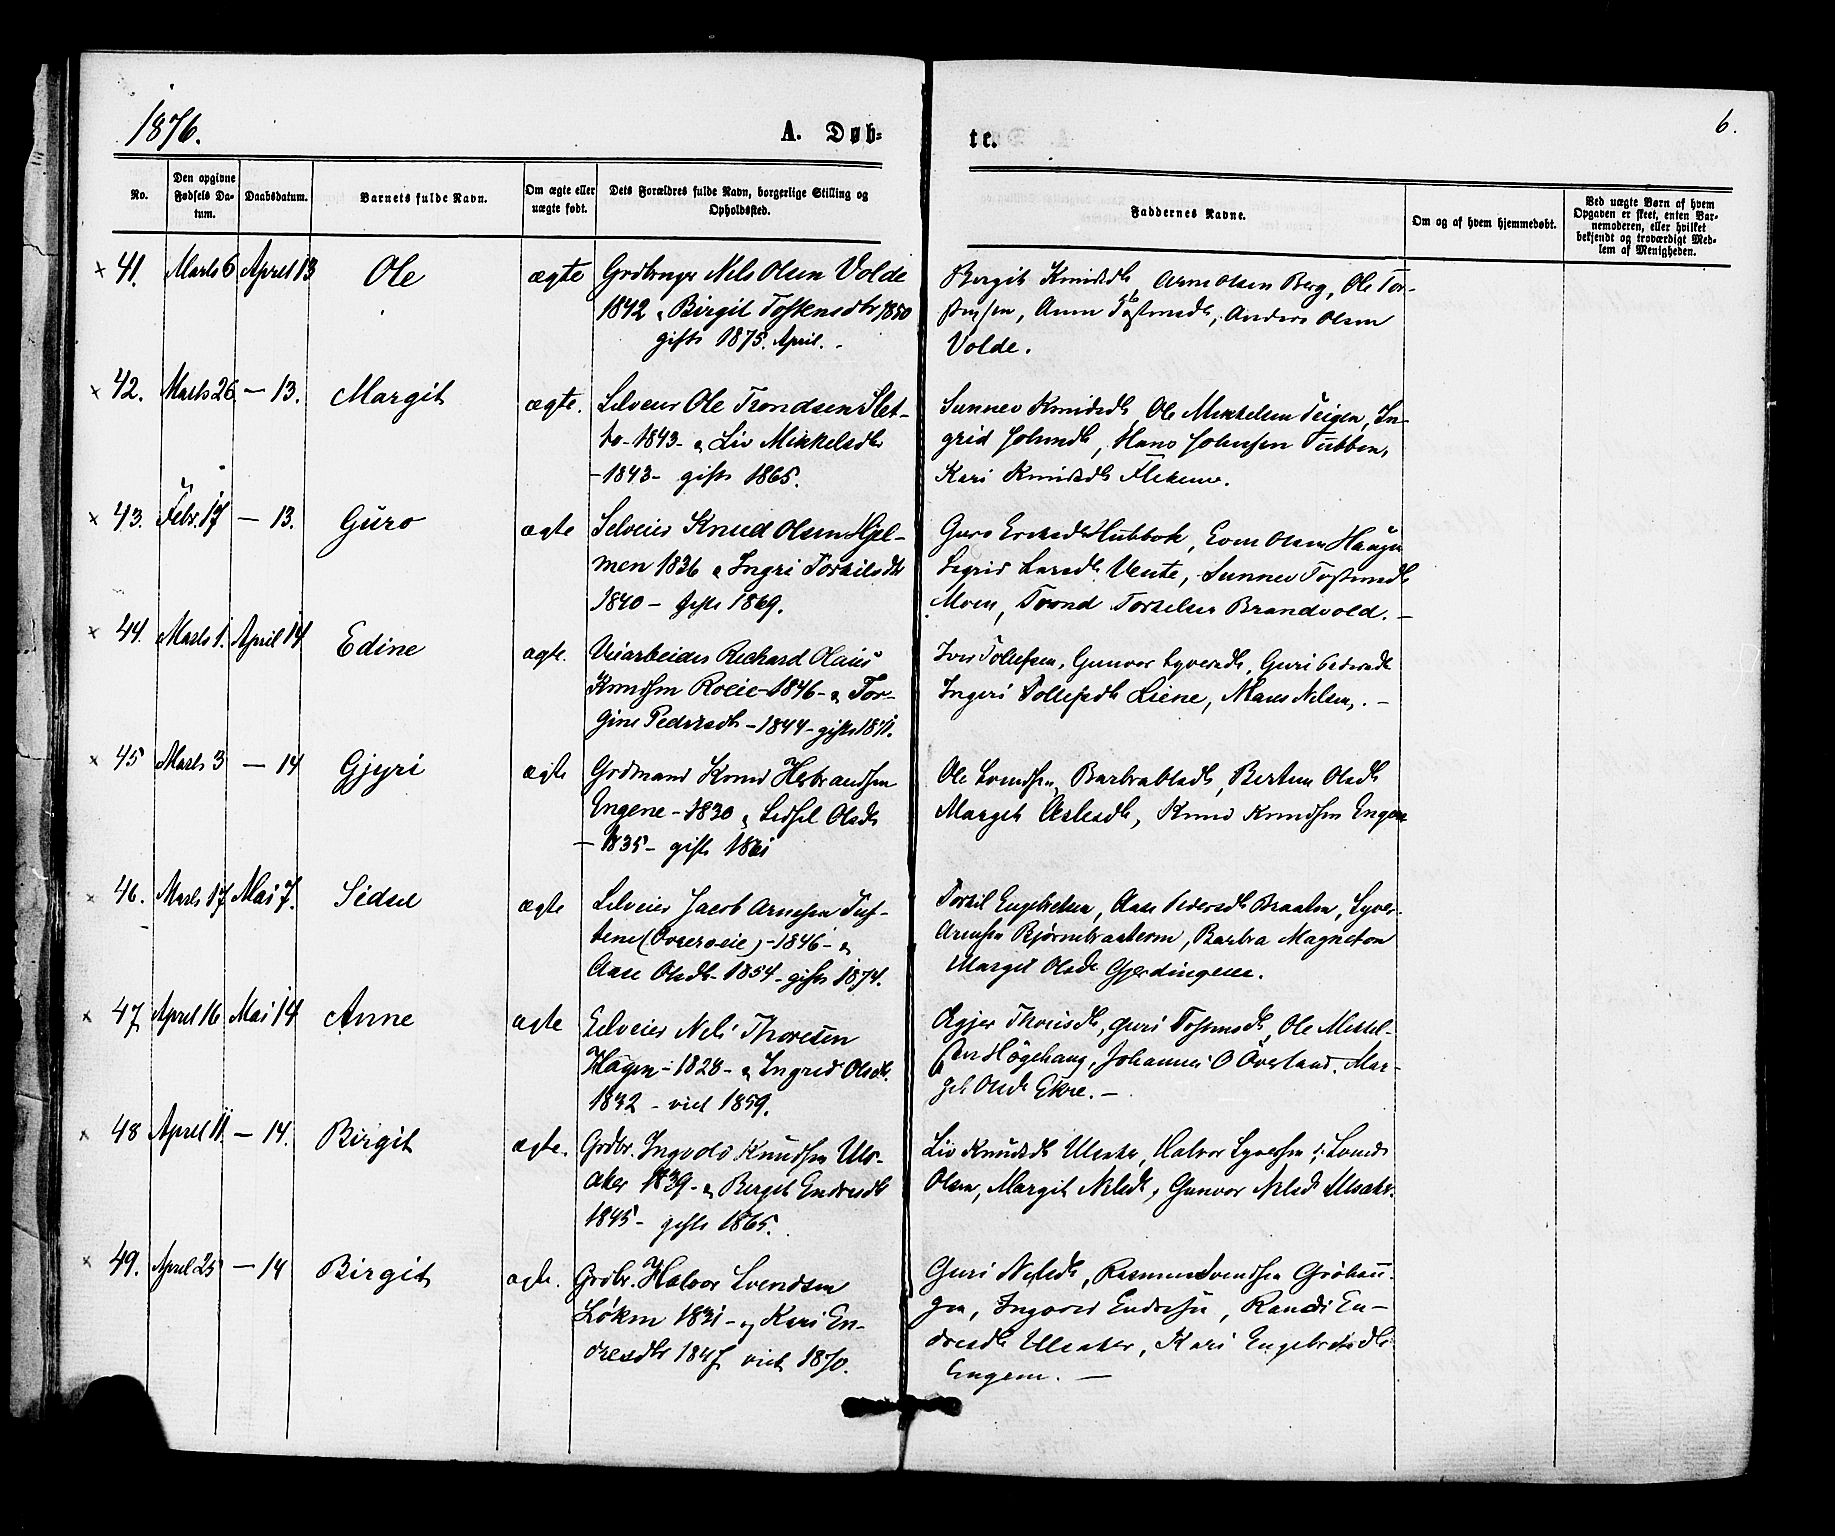 1876.
A. Døb-
te.
6.
No.
Den opgivne Fødsels Da-tum.
Daabsdatum.
Barnets fulde Navn.
Om ægte eller uægte født.
Dets Forældres fulde Navn, borgerlige Stilling og Opholdssted.
Faddernes Navne.
Om og af hvem hjemmedøbt.
Ved uægte Børn af hvem Opgaven er skeet, enten Bar-nemoderen, eller hvilket bekjendt og troværdigt Med-lem af Menigheden.
41. Marts 6 April 13 Ole ægte Grdbruger Nels Olsen Volde
1842 & Birgit Tostensdtr 1850
gifte 1875. April.
Bergit Knudsdtr, Arne Olsen Berg, Ole Tor-
stensen, Anne Tostensdtr, Anders Olsen
Volde.
42. Marts 26 — 13. Margit ægte. Selveier Ole Trondsen Slet-
to - 1843 - & Liv Mikkelsdtr
- 1843 - gifte 1865.
Sunnev Knudsdtr, Ole Mikkelsen Teigen, In-
grid Johnsdtr, Hans Johnsen Tubben,
Kari Knudsdtr
43. Febr. 17 — 13. Guro ægte Selveier Knud Olsen Hjel-
men 1836 & Ingri Torkilsdtr
1840 - gifte 1869.
Guro Eriksdtr Hubbok, Even Olsen Haugen
Sigrid Larsdtr Sunnev Tostensdtr
Moen, Trond Torkelsen Brandvold. —
44. Marts 1. April 14 Edine ægte. Veiarbeider Richard Olaus
Knudsen Roeie - 1846 - & Tor-
gine Pedersdtr - 1844 - gifte 1871.
Iver Tollefsen, Gunvor Syversdtr, Guri Pedersdtr
Ingeri Tollefsdtr Liene, Hans Nelsen, . —
45 Marts 3 — 14 Gjyri ægte Grdmand Knud Hebrandsen
Engene - 1830 & Sidsel Olsdtr
- 1835 - gifte 1861
Ole Svendsen, Barbra Olsdtr, Bertine Olsdtr
Margit Aslesdtr, Knud Knudsen Engene
46. Marts 17 Mai 7. Sidsel ægte Selveier Jacob Arnesen Tuf-
tene - 1846 - &
Aase Olsdtr - 1854 - gifte 1874.
Torkil Engebretsen, Aase Pedersdtr Braaten, Syver
Arnesen Bjørnebraatene, Barbra Magneton
Margit Olsdtr Gjerdingene.
47 April 16 Mai 14 Anne ægte Selveier Nels Thoresen
Hagen - 1823 - & Ingrid Olsdtr.
1832 - viet 1859.
Thorisdtr, Guri Tostensdtr, Ole Mikkel-
sen Høgehaug, Johannes O Øveland. Mar-
git Olsdtr Ekre. —
48 April 11 — 14. Birgit ægte. Grdbr. Ingvold Knudsen Uls-
aker 1839 - & Bergit Endresdtr
1845 - gifte 1865.
Liv Knudsdtr Ulsaker, Halvor Syversen Svend
Olsen, Margit Nelsdtr, Gunvor Nelsdtr Ulsaker.
49. April 25 — 14 Birgit ægte. Grdbr. Halvor Svendsen
Løken 1831 - og Kari En-
dresdtr 1847 viet 1870.
Guri Nelsdtr, Rasmus Svendsen Grøhau-
gen, Ingvald Endresen, Randi En-
dresdtr Ulsaker, Kari Engebretsdtr
Engene. —